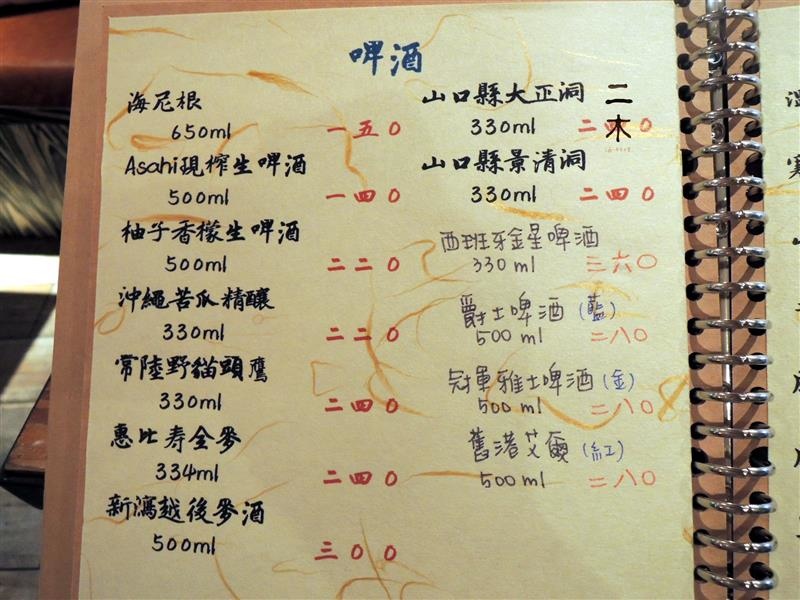 啤酒
海尼根
650ml 一五0
Asahi現榨生啤酒
500ml 一四0
柚子香檬生啤酒
500ml 二二0
沖繩苦瓜精釀
330ml 二二0
常陸野貓頭鷹
330ml 二四0
惠比寿全麥
334ml 二四0
新瀉越後麥酒
500ml 三00
山口縣大正洞
330ml 二四0
山口縣景清洞
330ml 二四0
西班牙金星啤酒
330 ml 二六0
爵士啤酒(藍)
500 ml 二八0
冠軍雅士啤酒(金)
500 ml 二八0
舊港艾爾(紅)
500 ml 二八0
二木